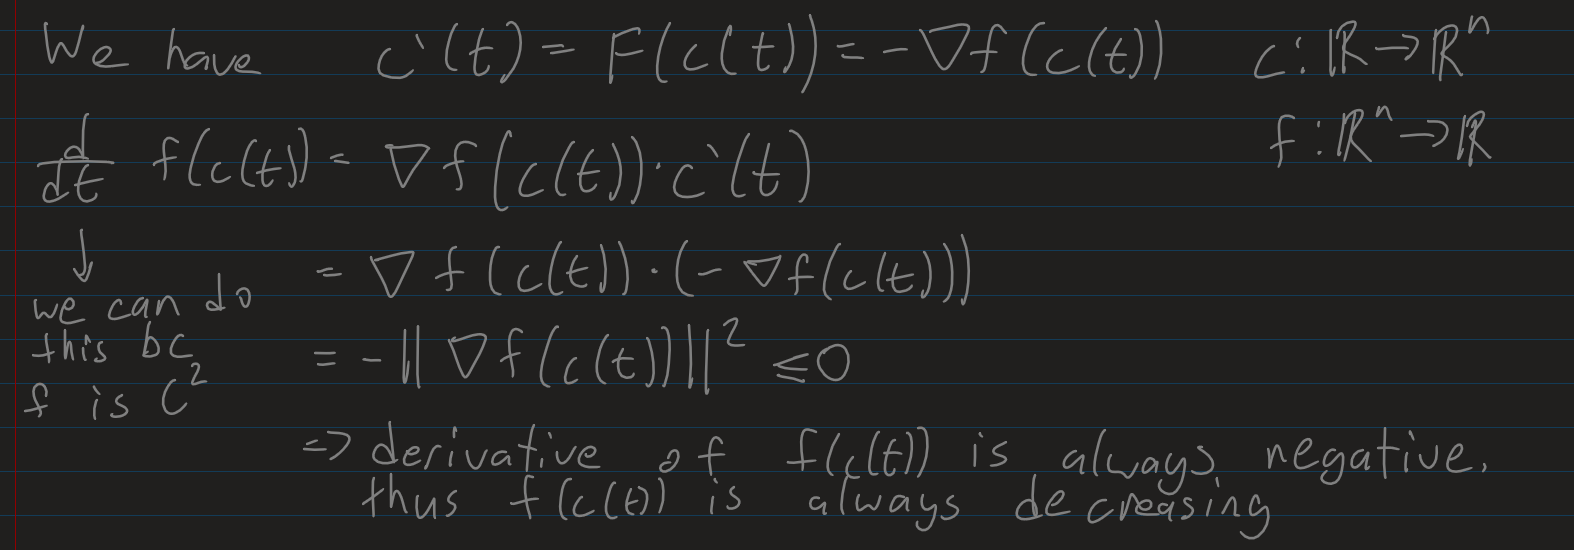 We have c'(t) = F(c(t)) = -∇f(c(t)) c: ℝ→ℝⁿ
f: ℝⁿ→ℝ
d/dt f(c(t)) = ∇f(c(t))·c'(t)
↓
= ∇f(c(t))·(-∇f(c(t)))
we can do
this bc
f is C²
= -||∇f(c(t))||² ≤0
=> derivative of f(c(t)) is always negative,
thus f(c(t)) is always decreasing